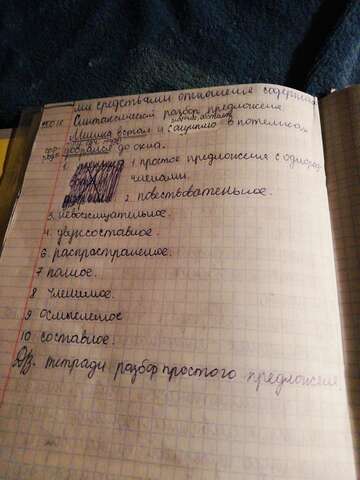 ми средствами отношение содержа
Синтаксический разбор предложения.
Мишка встал и в потемках
добрался до окна.
1. 1 простое предложения с однород
членами.
2. повествовательное.
3. невосклицательное.
4. двухсоставное.
6. распространенное.
7 полное.
8 членимое.
9 осложненное
10 составное.
Дз. тетради разбор простого предложения.